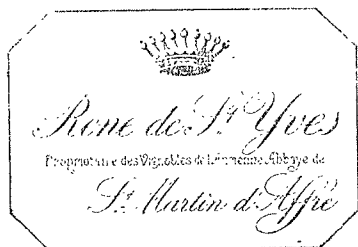 Rone de St Yves
Propriétaire des Vignobles de l'Ancienne Abbaye de
St Martin d'Affré